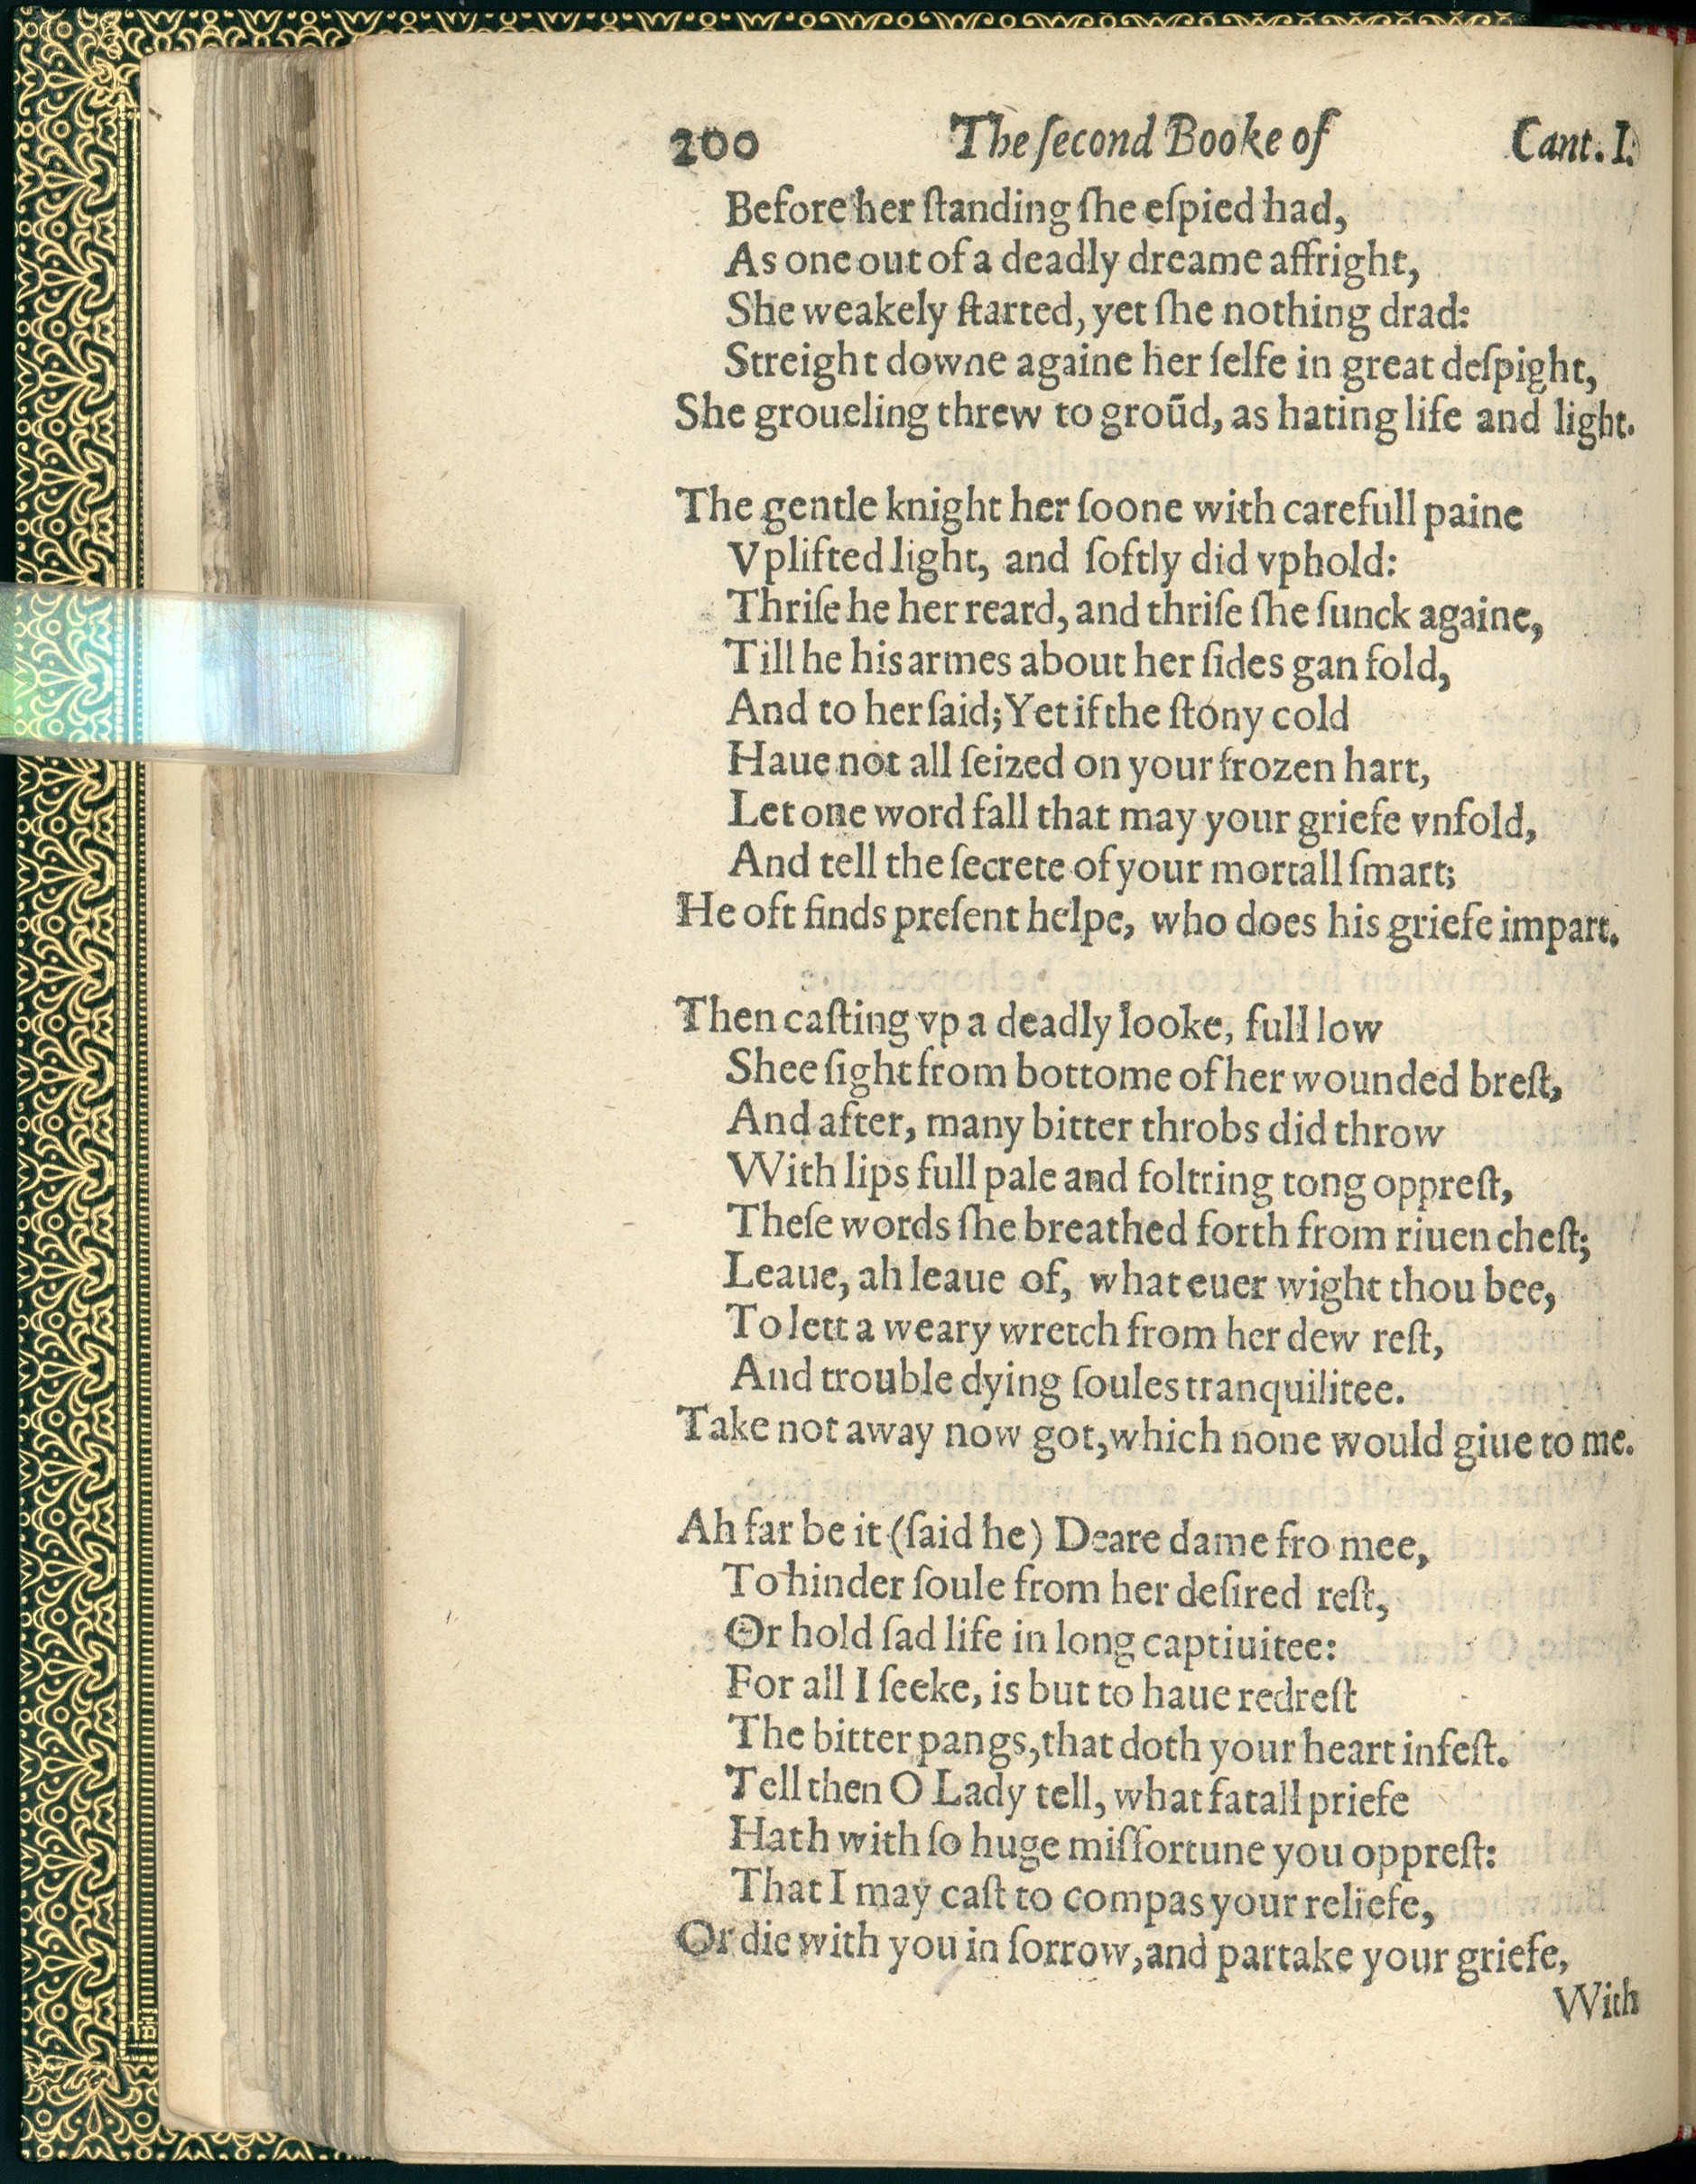 200 The ſecond Booke of Cant. I.
Before her ſtanding ſhe eſpied had,
As one out of a deadly dreame affright,
She weakely ſtarted, yet ſhe nothing drad:
Streight downe againe her ſelfe in great deſpight,
She groueling threw to groūd, as hating life and light.
The gentle knight her ſoone with carefull paine
Vplifted light, and ſoftly did vphold:
Thriſe he her reard, and thriſe ſhe ſunck againe,
Till he his armes about her ſides gan fold,
And to her ſaid; Yet if the ſtony cold
Haue not all ſeized on your frozen hart,
Let one word fall that may your griefe vnfold,
And tell the ſecrete of your mortall ſmart;
He oft finds preſent helpe, who does his griefe impart.
Then caſting vp a deadly looke, full low
Shee ſight from bottome of her wounded breſt,
And after, many bitter throbs did throw
With lips full pale and foltring tong oppreſt,
Theſe words ſhe breathed forth from riuen cheſt;
Leaue, ah leaue of, what euer wight thou bee,
To lett a weary wretch from her dew reſt,
And trouble dying ſoules tranquilitee.
Take not away now got, which none would giue to me.
Ah far be it (ſaid he) Deare dame fro mee,
To hinder ſoule from her deſired reſt,
Or hold ſad life in long captiuitee:
For all I ſeeke, is but to haue redreſt
The bitter pangs, that doth your heart infeſt.
Tell then O Lady tell, what fatall priefe
Hath with ſo huge miſfortune you oppreſt:
That I may caſt to compas your reliefe,
Or die with you in ſorrow, and partake your griefe,
With